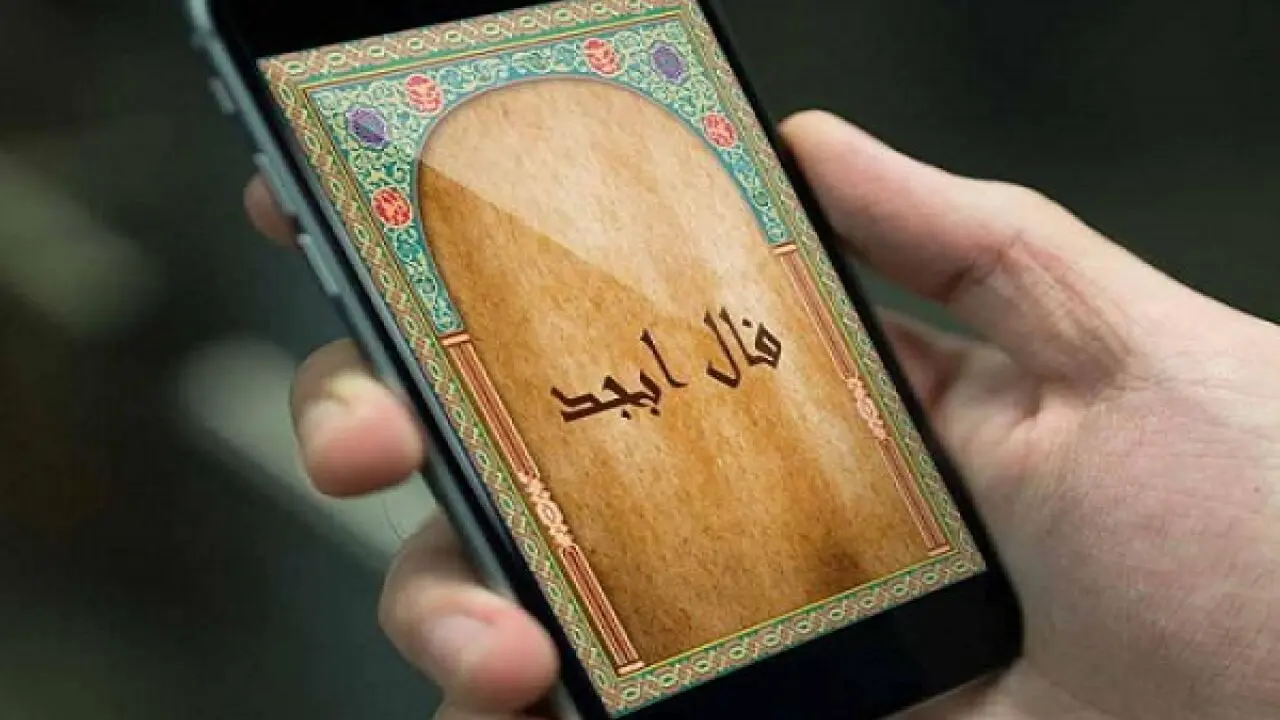 فال ابجد